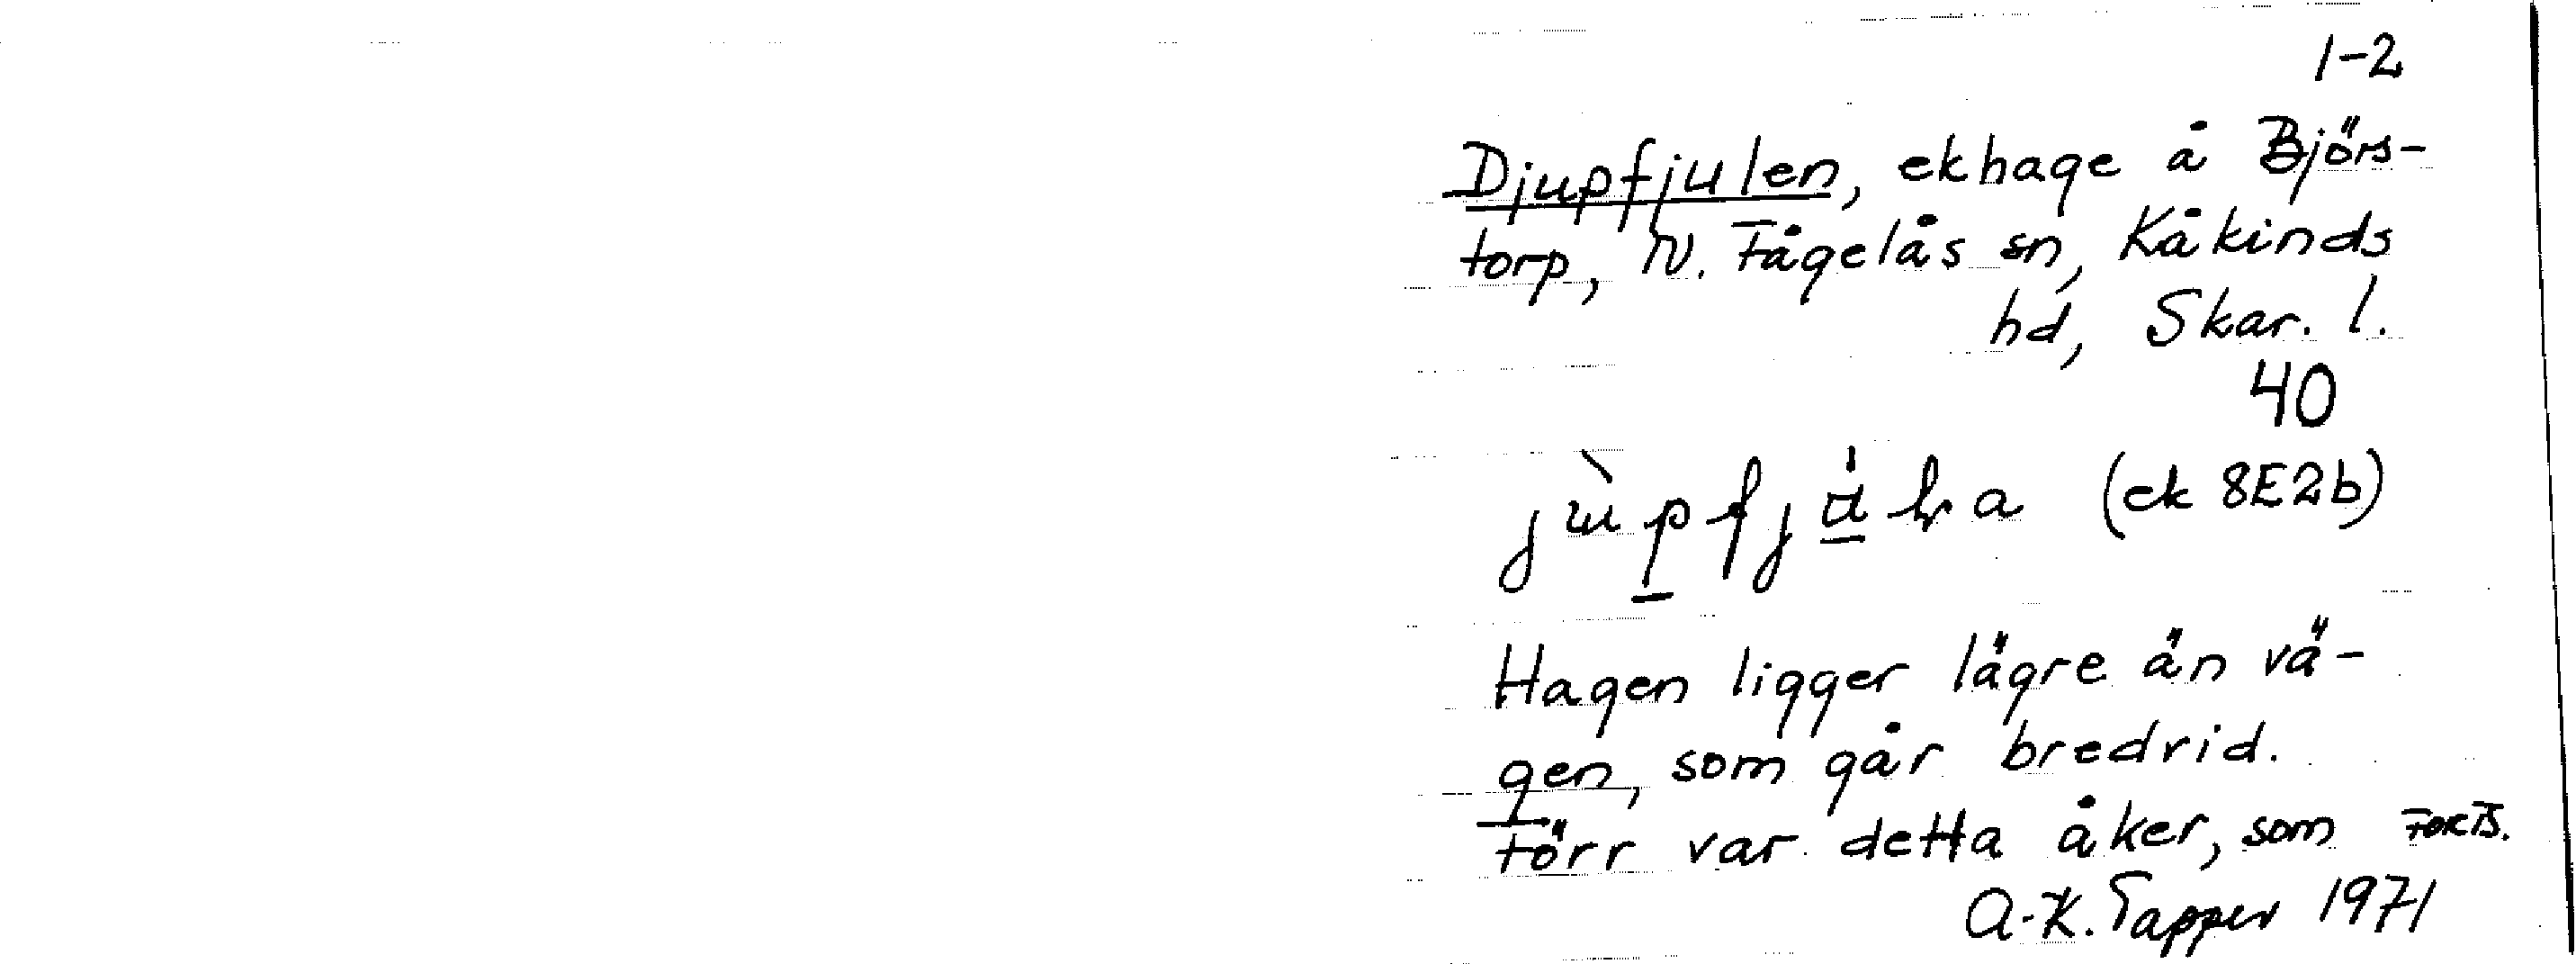 1-2
Djupfjulen, ekhage å Björs-
torp, N. Fågelås sn, Kåkinds
hd, Skar. l.
40
(ek 8E2b)
Hagen ligger lägre än vä-
gen, som går bredvid.
Förr var detta åker, som FORTS.
A-K. Tapper 1971